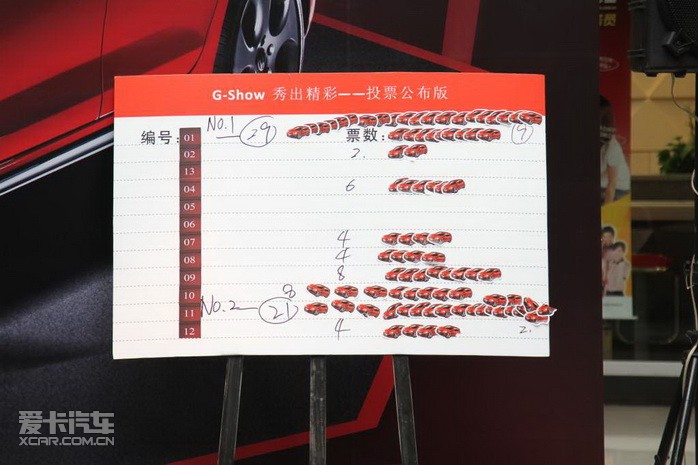 G-Show 秀出精彩——投票公布版
编号: 01 NO.1 29 票数:
02 2.
13
04 6
05
06
07 4
08 4
09 8
10 8
11 NO.2 21
12 4 2.
爱卡汽车
XCAR.COM.CN